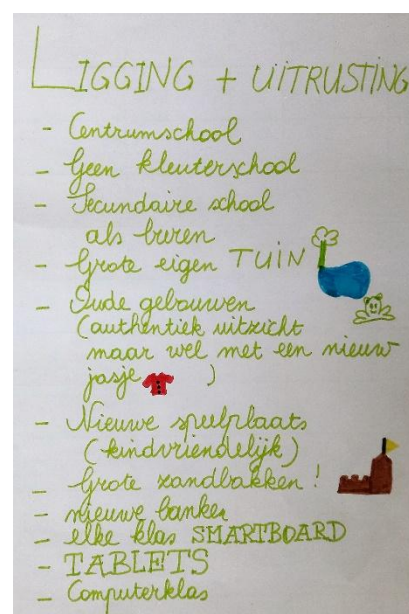 LIGGING + UITRUSTING
- Centrumschool
- Geen kleuterschool
- Secundaire school
als buren
- Grote eigen TUIN
- Oude gebouwen
(authentiek uitzicht
maar wel met een nieuw
jasje )
- Nieuwe speelplaats
(kindvriendelijk)
- Grote zandbakken !
- nieuwe banken
- elke klas SMARTBOARD
- TABLETS
- Computerklas